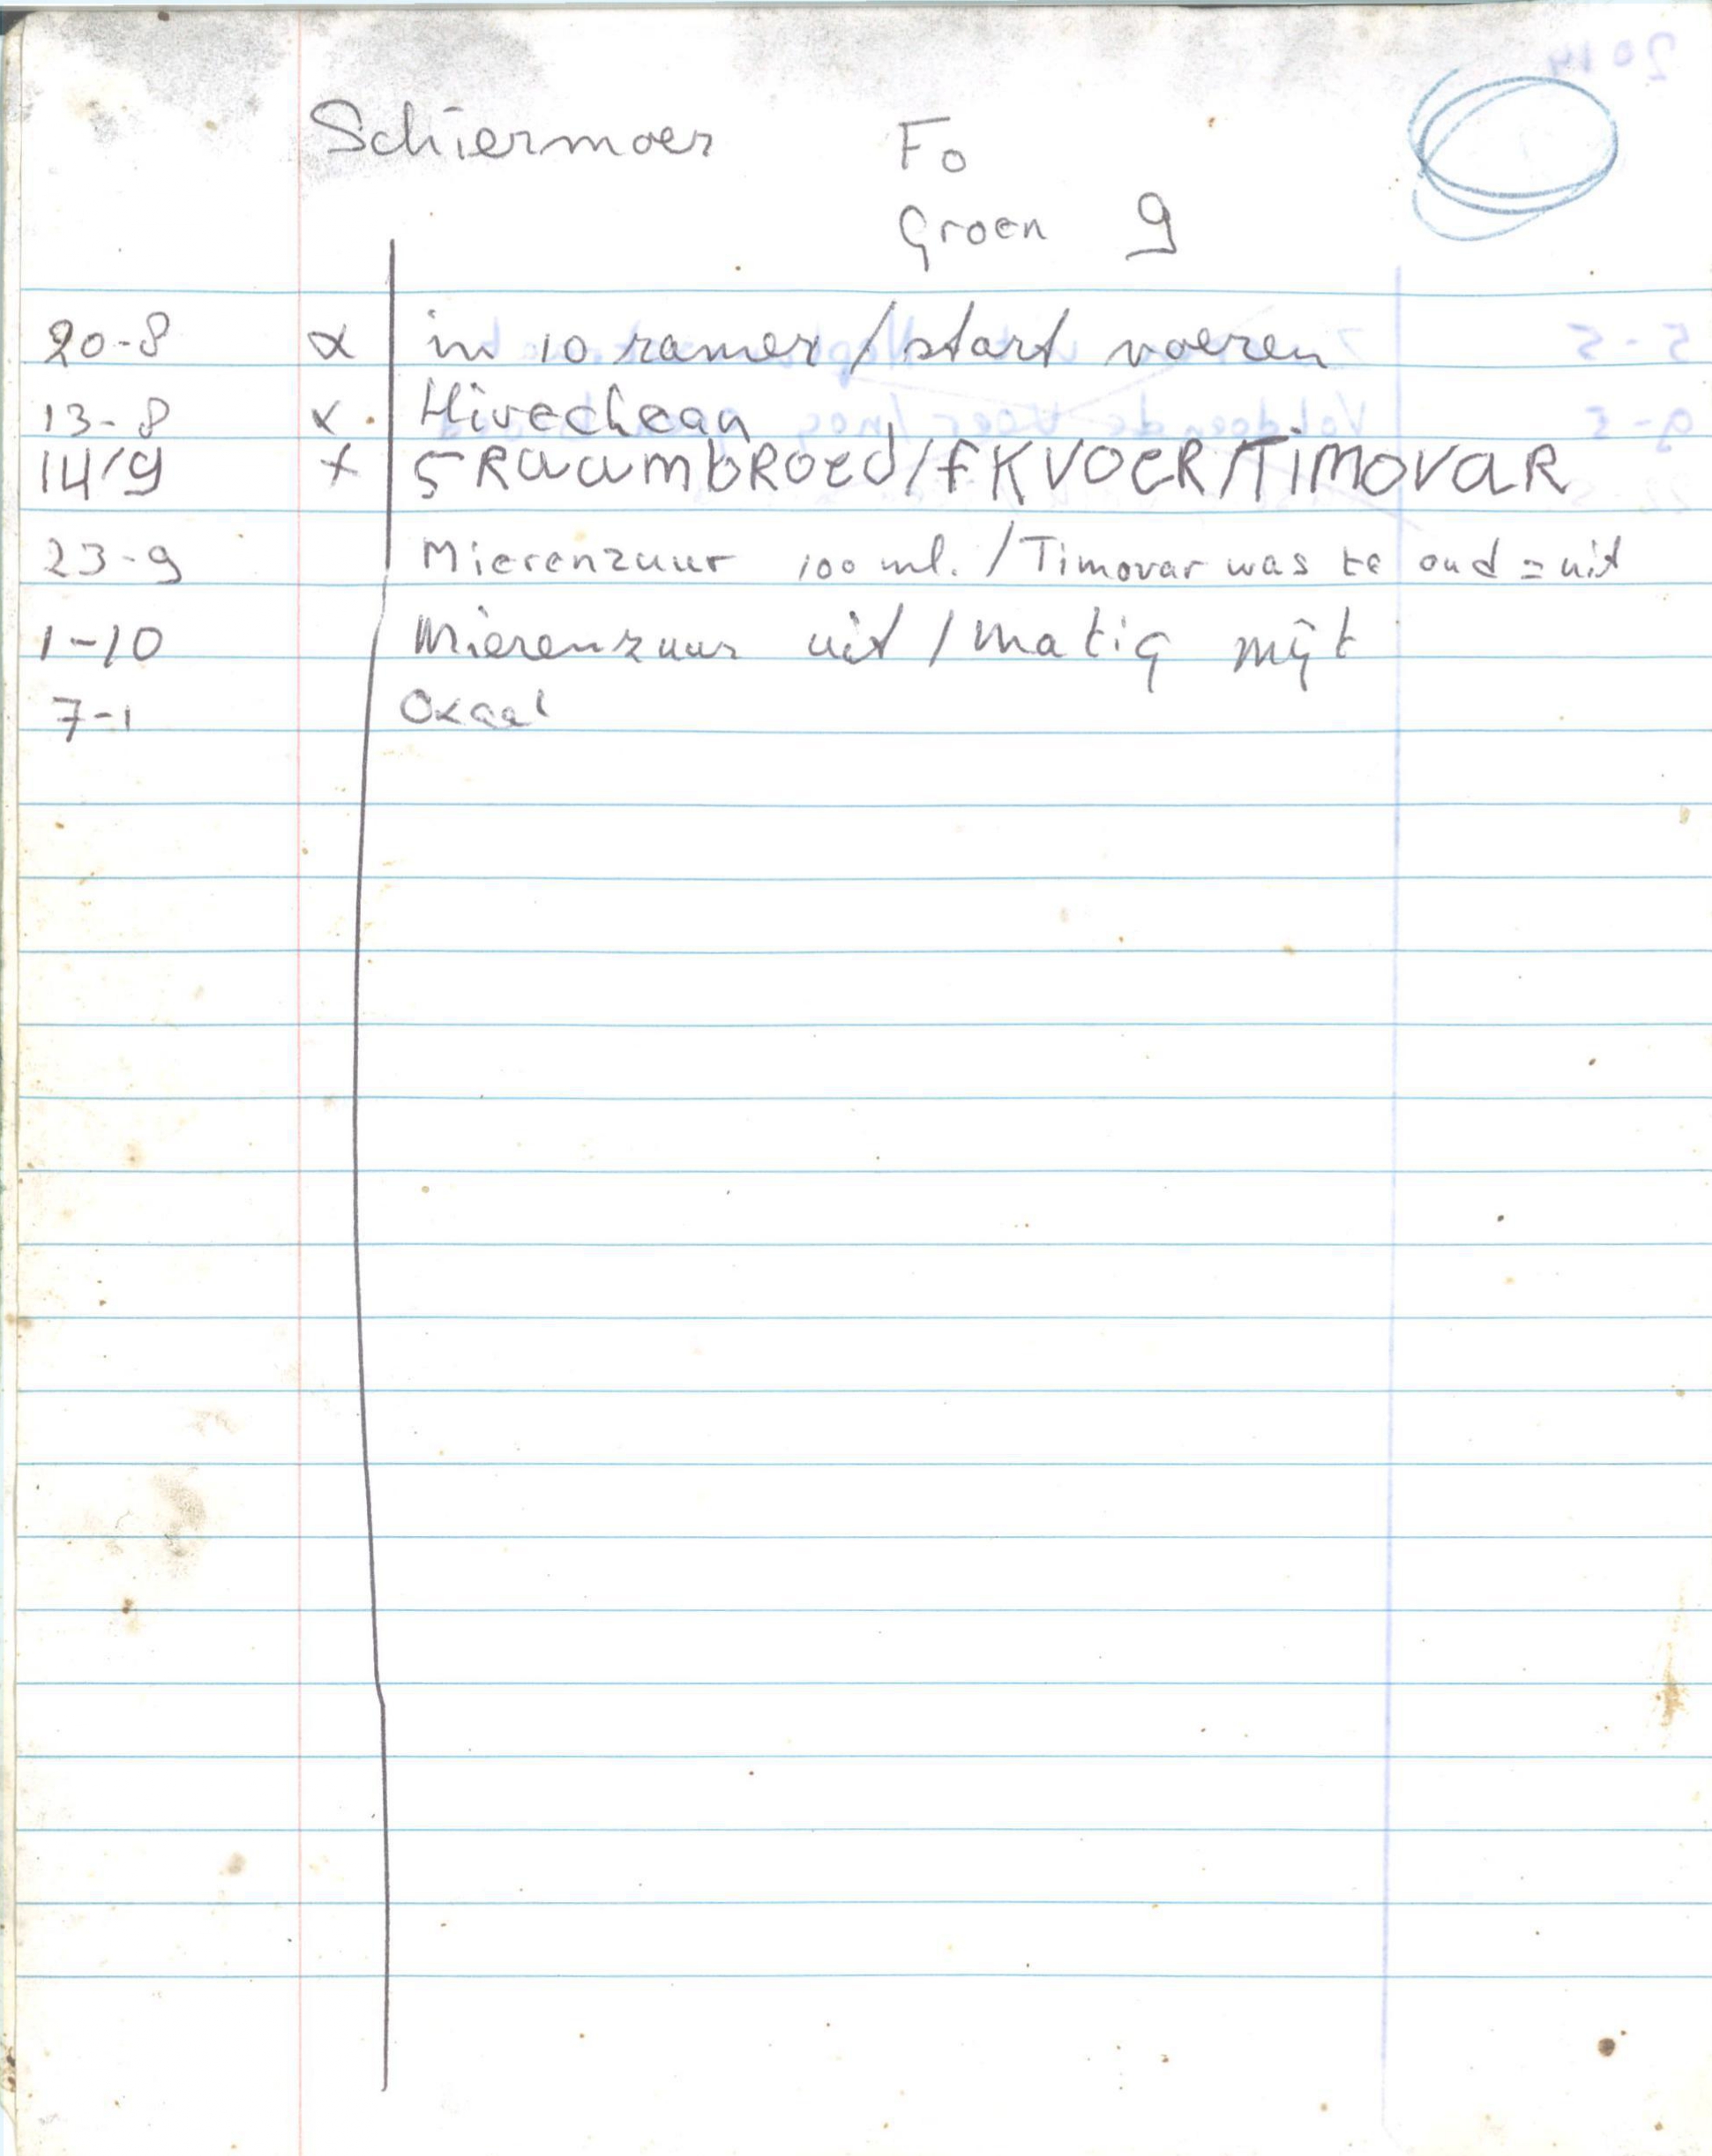 Schiermoer Fo
Groen 9
20-8 x in 10 ramer / start voeren
13-8 x Hiveclean
14/9 x 5 RaambRoed/fKVOER/TiMOVaR
23-9 Mierenzuur 100 ml. / Timovar was te oud = uit
1-10 Mierenzuur uit / matig mijt
7-1 Oxaal